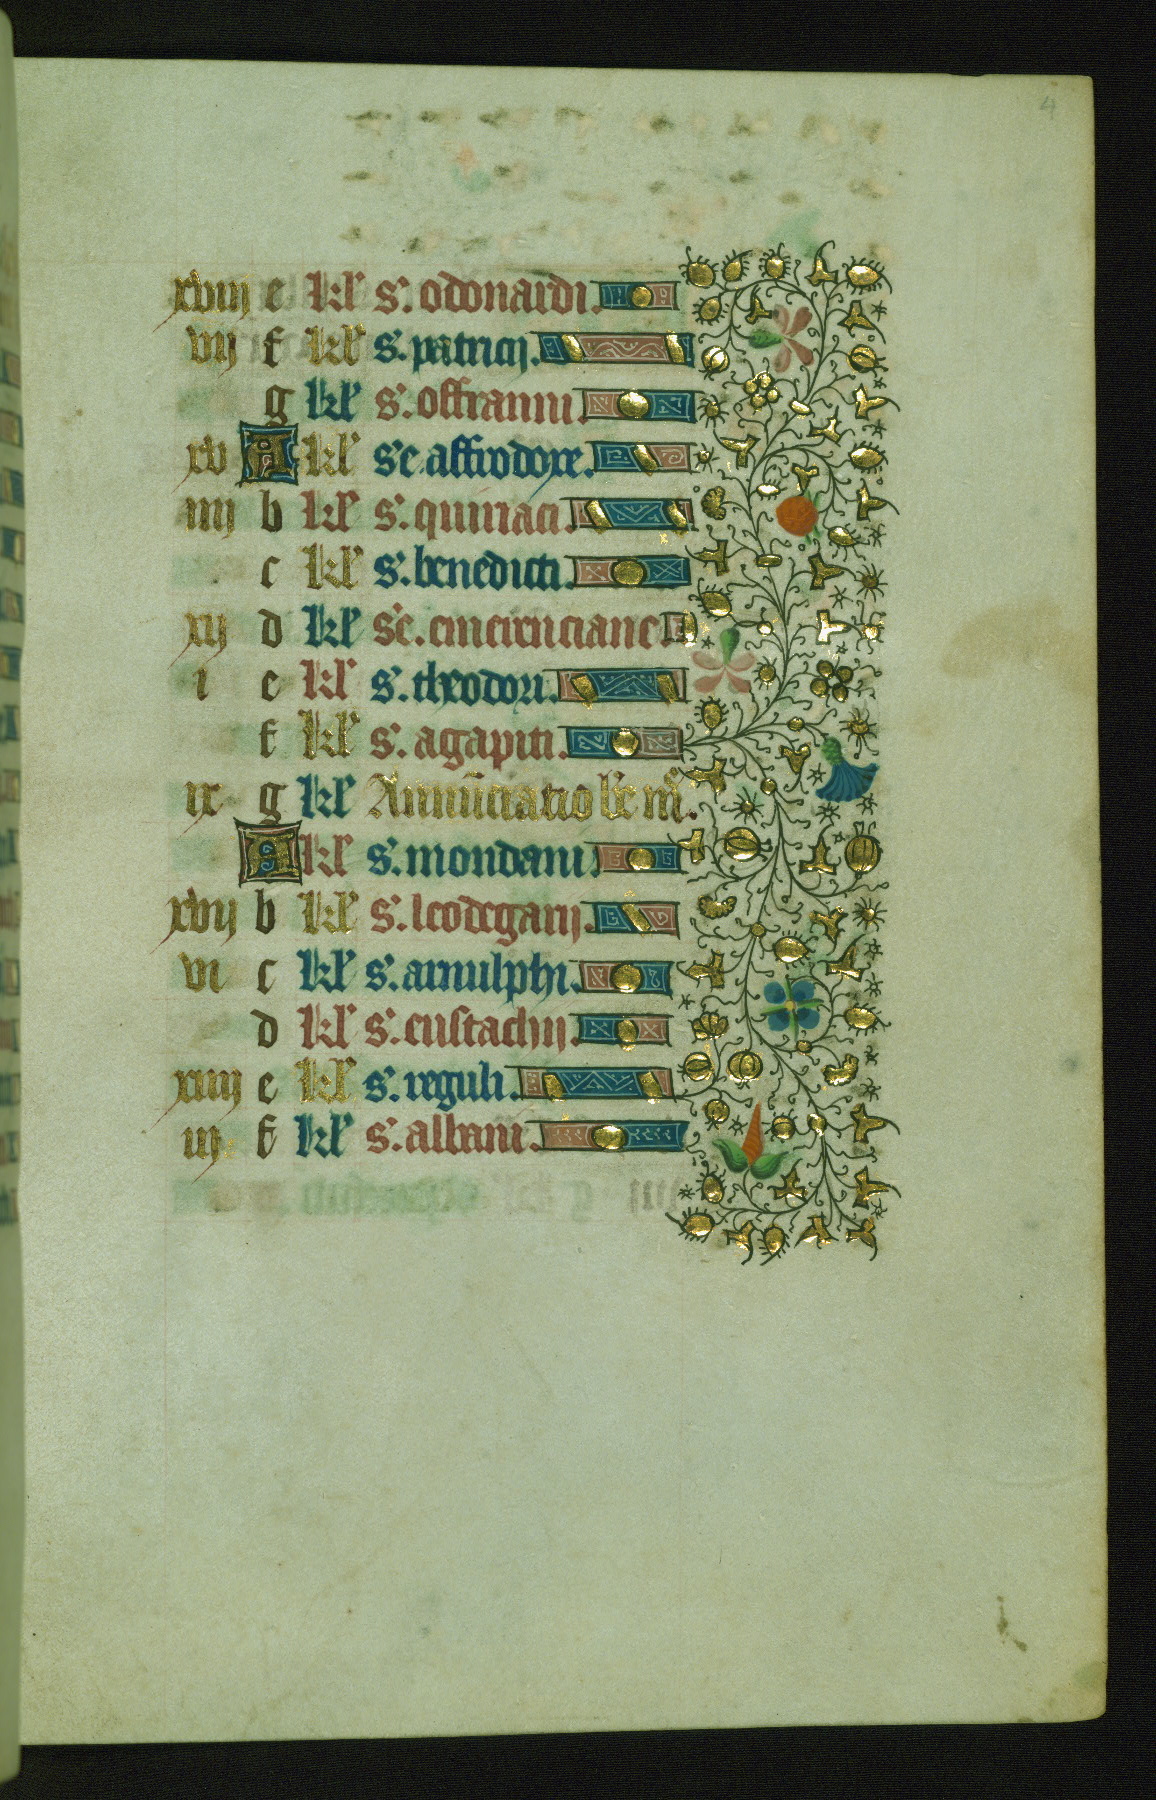 4
xviij e kl' s'. odonardi.
vij f kl' s. patricij.
g kl' s. offranni
xv A kl' s'c. affrodoxe.
iiij b kl' s. quiriaci
c kl' s. benedicti.
xij d kl' s'c. emerenciane
i e kl' s. theodori.
f kl' s. agapiti.
ix g kl' Annu͂ciatio b'e m'.
A kl' s. mondani
xvij b kl' s. leodegarij.
vi c kl' s. arnulphi.
d kl' s. eustachij.
xiiij e kl' s. reguli.
iij f kl' s. albani.